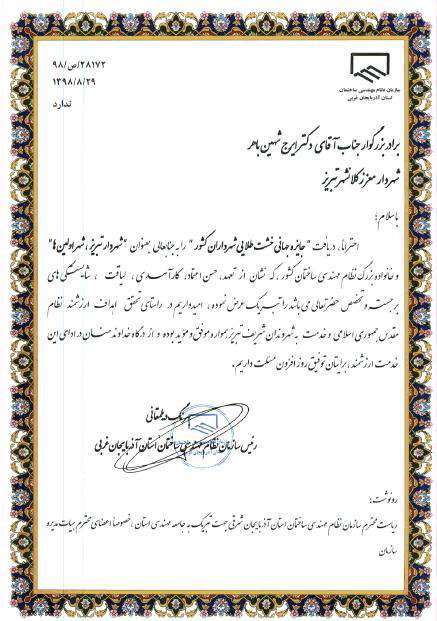 ۹۸/ص/۲۸۱۷۲
۱۳۹۸/۸/۲۹
ندارد
سازمان نظام مهندسی ساختمان
استان آذربایجان غربی
برادر بزرگوار جناب آقای دکتر ایرج شهین باهر
شهردار معزز کلانشهر تبریز
باسلام؛
احتراماً، دریافت "جایزه جهانی خشت طلایی شهرداران کشور" را به جنابعالی بعنوان "شهردار تبریز، شهر اولین ها"
و خانواده بزرگ نظام مهندسی ساختمان کشور، که نشان از تعهد، حسن اعتماد، کارآمدی، لیاقت، شایستگی های
برجسته و تخصص حضرتعالی می باشد را تبریک عرض نموده، امیدواریم در راستای تحقق اهداف ارزشمند نظام
مقدس جمهوری اسلامی و خدمت به شهروندان شریف تبریز همواره موفق و مؤید بوده و از درگاه خداوند منان در ادای این
خدمت ارزشمند، برایتان توفیق روز افزون مسئلت داریم.
رئیس سازمان نظام مهندسی ساختمان استان آذربایجان غربی
رونوشت:
ریاست محترم سازمان نظام مهندسی ساختمان استان آذربایجان شرقی جهت تبریک به جامعه مهندسی استان، خصوصاً اعضای محترم هیات مدیره
سازمان